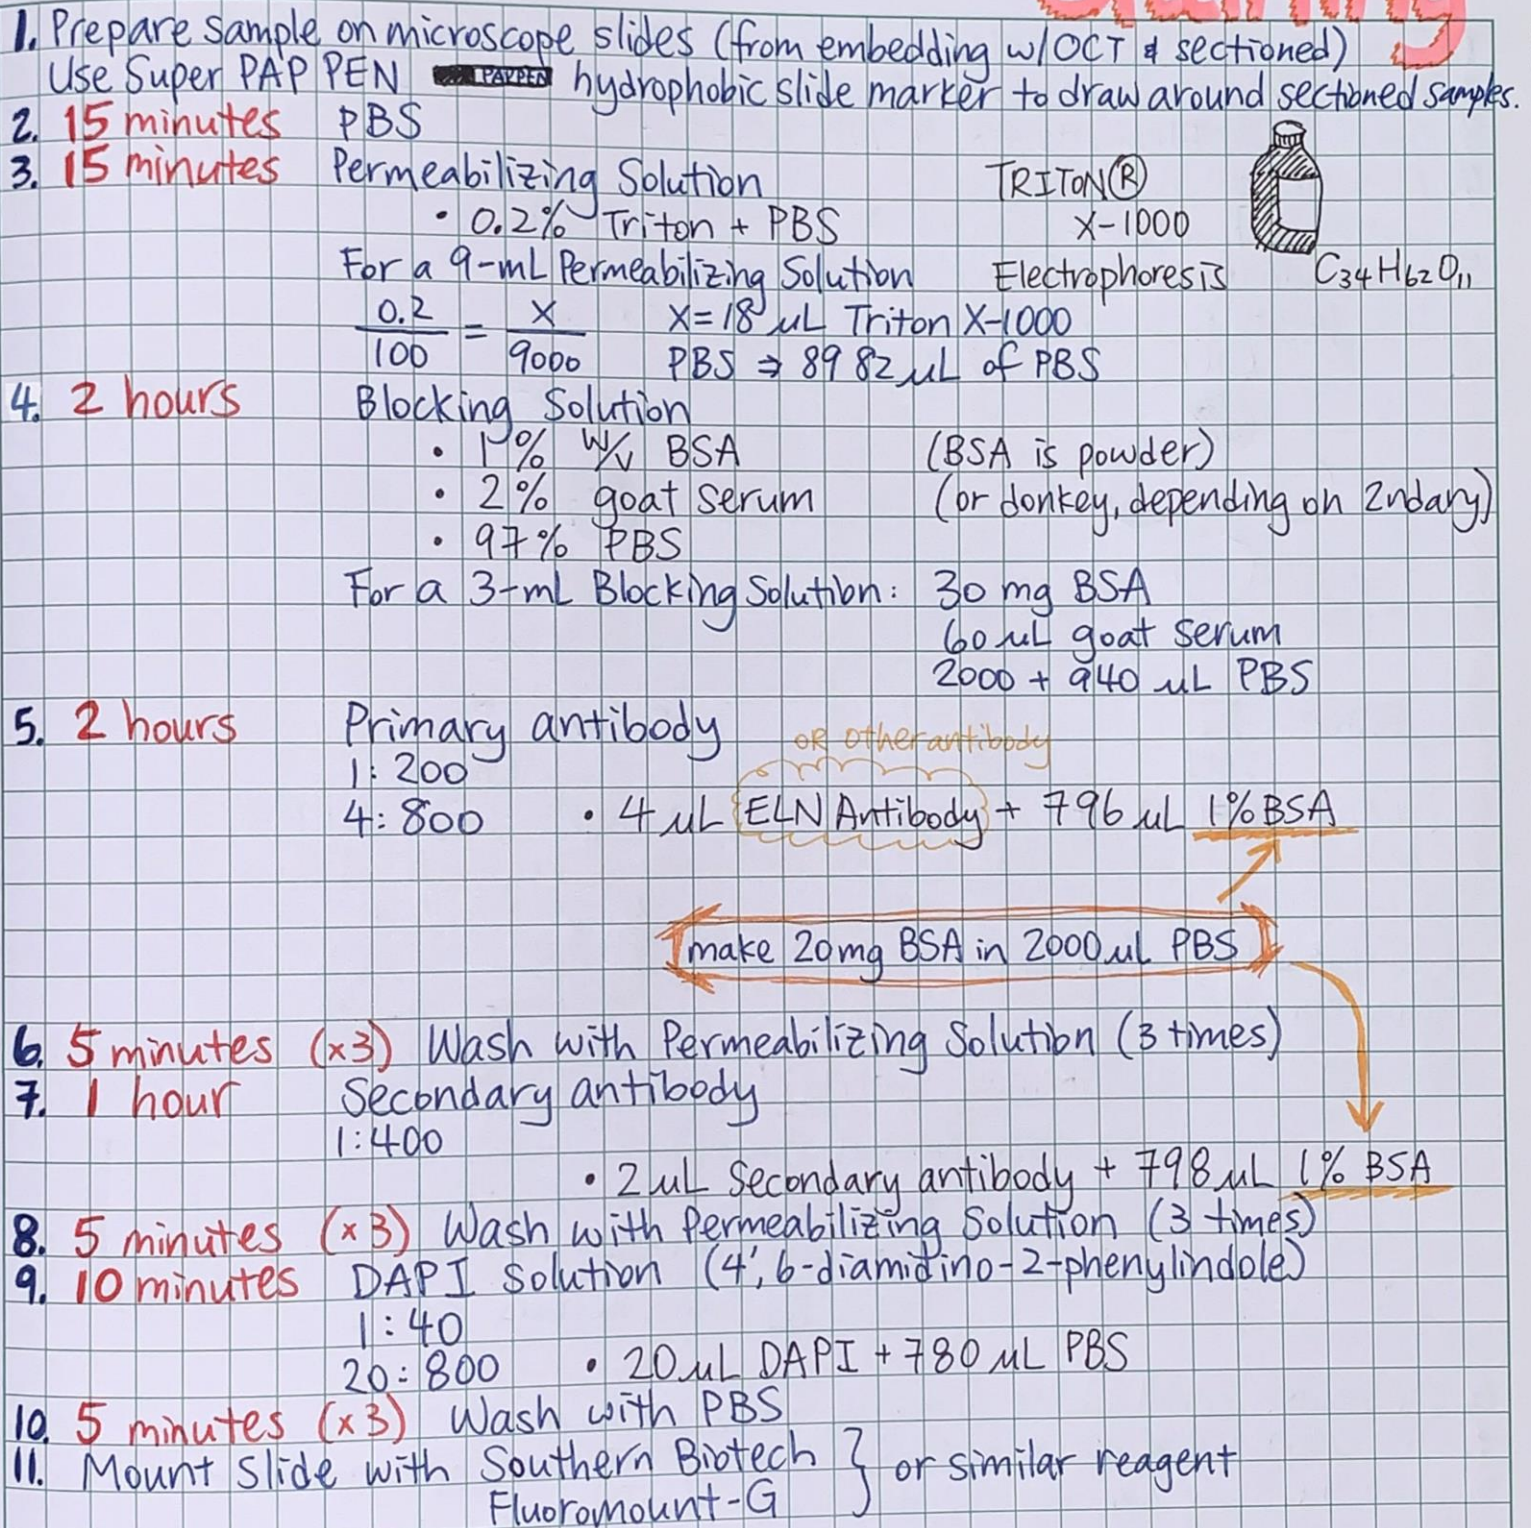 Staining
1. Prepare sample on microscope slides (from embedding w/OCT & sectioned)
Use Super PAP PEN PAP PEN hydrophobic slide marker to draw around sectioned samples.
2. 15 minutes PBS
3. 15 minutes Permeabilizing Solution
• 0.2% Triton + PBS
TRITON®
X-1000
Electrophoresis C34H62O11
For a 9-mL Permeabilizing Solution
0.2/100 = X/9000 X=18 µL Triton X-1000
PBS ⇒ 8982 µL of PBS
4. 2 hours Blocking Solution
• 1% w/v BSA (BSA is powder)
• 2% goat serum (or donkey, depending on 2ndary)
• 97% PBS
For a 3-mL Blocking Solution: 30 mg BSA
60 µL goat serum
2000 + 940 µL PBS
5. 2 hours Primary antibody
OR other antibody
1:200
4:800 • 4 µL ELN Antibody + 796 µL 1% BSA
make 20mg BSA in 2000 µL PBS
6. 5 minutes (x3) Wash with Permeabilizing Solution (3 times)
7. 1 hour Secondary antibody
1:400
• 2 µL Secondary antibody + 798 µL 1% BSA
8. 5 minutes (x3) Wash with Permeabilizing Solution (3 times)
9. 10 minutes DAPI Solution (4', 6-diamidino-2-phenylindole)
1:40
20:800 • 20 µL DAPI + 780 µL PBS
10. 5 minutes (x3) Wash with PBS
11. Mount Slide with Southern Biotech } or similar reagent
Fluoromount-G